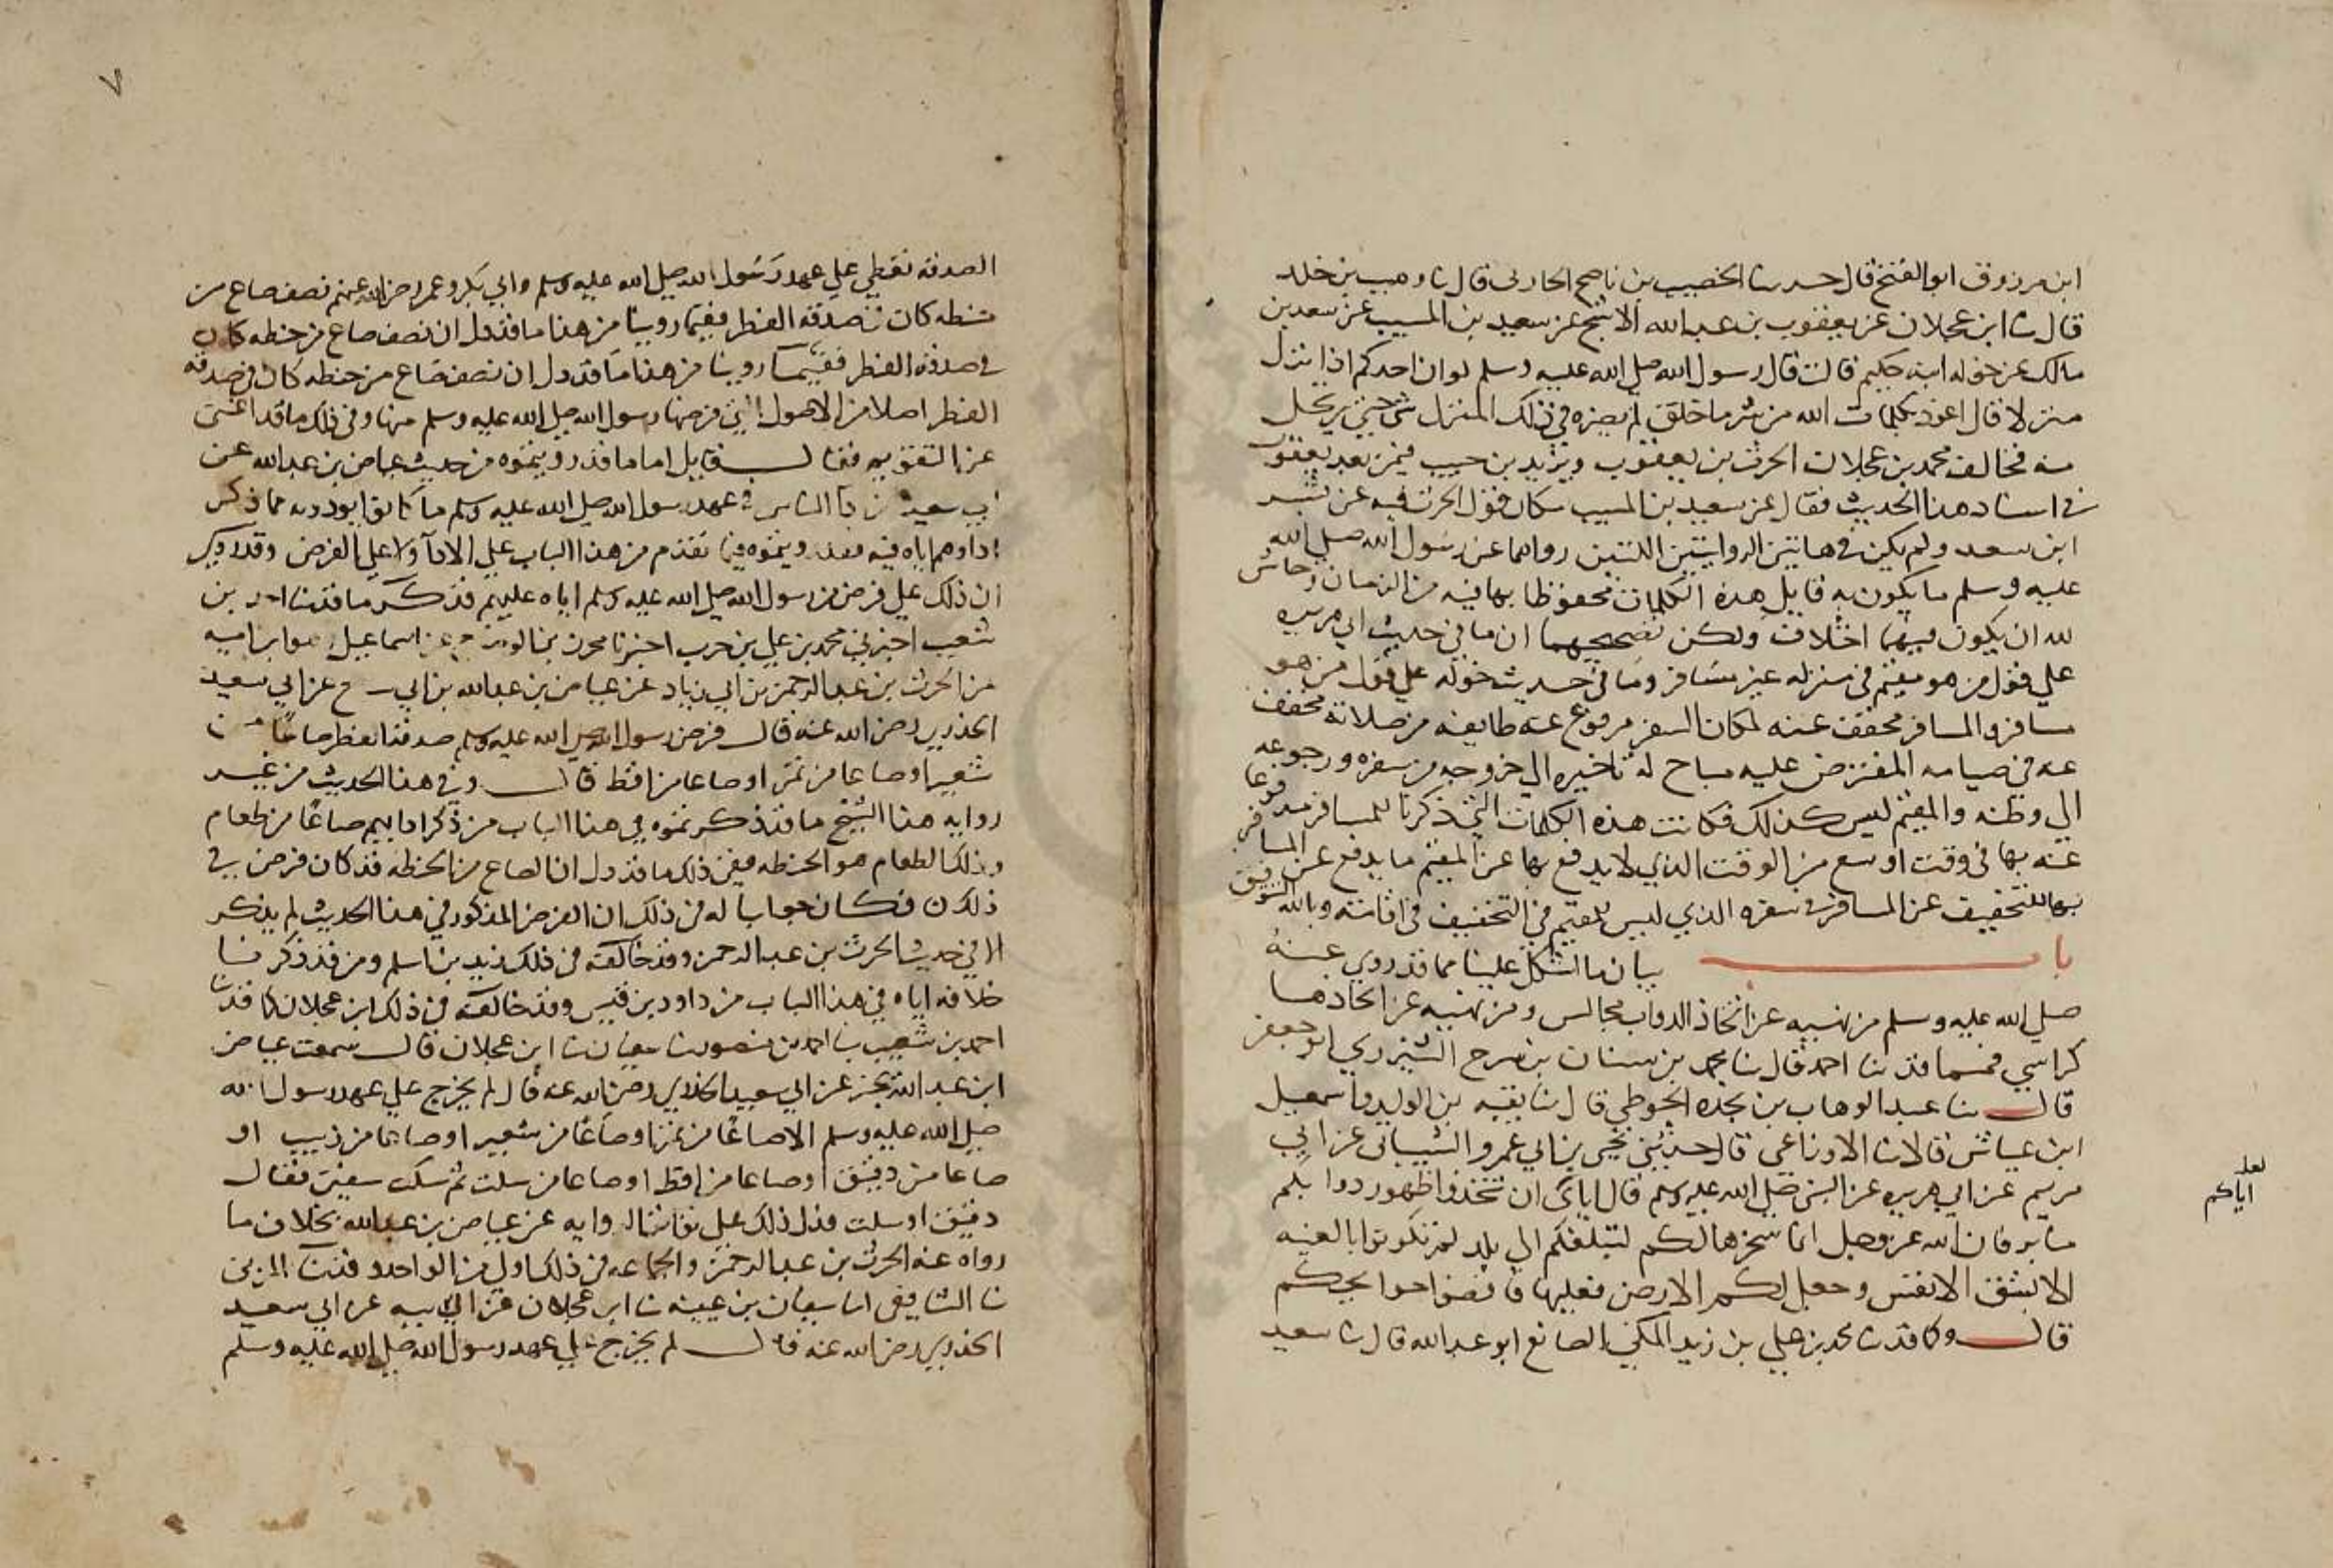 ابن مرزوق ابو الفتح قال حدثنا الخصيب بن ناصح الحارثى قال ثنا وهيب بن خلد
قال ثنا ابن عجلان عن يعقوب بن عبد الله الاشج عن سعيد بن المسيب عن سعد بن
مالك عن خوله ابنه حكيم قالت قال رسول الله صلى الله عليه وسلم لو ان احدكم اذا نزل
منزلا قال اعوذ بكلمات الله من شر ما خلق لم يضره في ذلك المنزل شي حتى يرتحل
منه فخالف محمد بن عجلان الحرث بن يعقوب ويزيد بن حبيب فيمن بعد يعقوب
في اسناد هذا الحديث فقال عن سعيد بن المسيب مكان قول الحرث فيه عن بسر
ابن سعد ولم يكن في هاتين الروايتين اللتين رواهما عن رسول الله صلى الله
عليه وسلم ما يكون به قايل هذه الكلمات محفوظا بها فيه من الزمان وحاش
لله ان يكون فيهما اختلاف ولكن تصحيحهما ان ما في حديث ابي هريره
علي قول من هو مقيم في منزله غير مسافر وما في حديث خوله علي قول من هو
مسافر والمسافر مخفف عنه لمكان السفر مرفوع عنه طايفه من صلاته مخفف
عنه في صيامه المفترض عليه مباح له تاخيره الي خروجه من سفره ورجوعه
الي وطنه والمقيم ليس كذلك فكانت هذه الكلمات التي ذكرنا للمسافر مدفوعا
عنه بها في وقت اوسع من الوقت الذي لا يدفع بها عن المقيم ما يدفع عن المسافر
بها للتخفيف عن المسافر في سفره الذي ليس للمقيم في التخفيف في اقامته وبالله التوفيق
باب بيان ما اشكل علينا مما قد روي عنه
صلى الله عليه وسلم من نهيه عن اتخاذ الدواب مجالس ومن نهييه عن اتخاذها
كراسي فمنما قد ثنا احمد قال ثنا محمد بن سنان بن سرح الشيزري ابو جعفر
قال ثنا عبد الوهاب بن نجده الحوطي قال ثنا بقيه بن الوليد واسمعيل
ابن عياش قالا ثنا الاوزاعي قال حدثني يحيى بن ابي عمرو الشيباني عن ابي
مريم عن ابي هريره عن النبي صلى الله عليه وسلم قال اياي ان تتخذوا ظهور دوابكم
منابر فان الله عز وجل انما سخرها لكم لتبلغكم الي بلد لم تكونوا بالغيه
الا بشق الانفس وجعل لكم الارض فعليها فاقضوا حوايجكم
قال وكما قد ثنا محمد بن علي بن زيد المكي الصايغ ابو عبد الله قال ثنا سعيد
لعله
اياكم
٧
الصدقه تعطي علي عهد رسول الله صلى الله عليه وسلم وابي بكر وعمر رضى الله عنهم نصف صاع من
حنطه كان صدقه الفطر ففيما روينا من هذا ما قد دل ان نصف صاع من حنطه كان
في صدقه الفطر ففيما روينا من هذا ما قد دل ان نصف صاع من حنطه كان في صدقه
الفطر اصلا من الاصول التي فرضها رسول الله صلى الله عليه وسلم منها وفي ذلك ما قد اغنى
عن فقال قايل اما ما قد رويتموه من حديث عياض بن عبد الله عن
ابي سعيد الناس في عهد رسول الله صلى الله عليه وسلم ما كانوا يودونه مما ذكر
اداوهم اياه فيه فقد رويتموه فيما تقدم من هذا الباب علي الادآ ولا علي الفرض وقد ذكر
ان ذلك علي فرض من رسول الله صلى الله عليه وسلم اياه عليهم فذكر ما قد ثنا احمد بن
شعيب اخبرني محمد بن علي بن حرب اخبرنا محرز بن الوضاح عن اسماعيل هو ابن اميه
عن الحرث بن عبد الرحمن بن ابي ذباب عن عياض بن عبد الله بن ابي سرح عن ابي سعيد
الخدري رضى الله عنه قال فرض رسول الله صلى الله عليه وسلم صدقه الفطر صاعا من
شعير او صاعا من تمر او صاعا من اقط قال وفي هذا الحديث من غير
روايه هذا الشيخ ما قد ذكرتموه في هذا الباب من ذكر ادايهم صاعا من طعام
وذلك الطعام هو الحنطه ففي ذلك ما قد دل ان الصاع من الحنطه قد كان فرض في
ذلك فكان جوابنا له في ذلك ان الفرض المذكور في هذا الحديث لم يذكر
الا في حديث الحرث بن عبد الرحمن وقد خالفه في ذلك زيد بن اسلم ومن قد ذكرنا
خلافه اياه في هذا الباب من داود بن قيس وقد خالفه في ذلك ابن عجلان كما قد ثنا
احمد بن شعيب ثنا محمد بن منصور ثنا سفيان ثنا ابن عجلان قال سمعت عياض
ابن عبد الله يخبر عن ابي سعيد الخدري رضى الله عنه قال لم يخرج علي عهد رسول الله
صلى الله عليه وسلم الا صاعا من تمر او صاعا من شعير او صاعا من زبيب او
صاعا من دقيق او صاعا من اقط او صاعا من سلت ثم شك سفين فقال
دقيق او سلت فدل ذلك علي روايه عن عياض بن عبد الله بخلاف ما
رواه عنه الحرث بن عبد الرحمن والجماعه في ذلك اولي من الواحد وقد ثنا المزني
ثنا الشافعي انا سفيان بن عيينه ثنا ابن عجلان عن ابي سعيد
الخدري رضى الله عنه قال لم يخرج علي عهد رسول الله صلى الله عليه وسلم